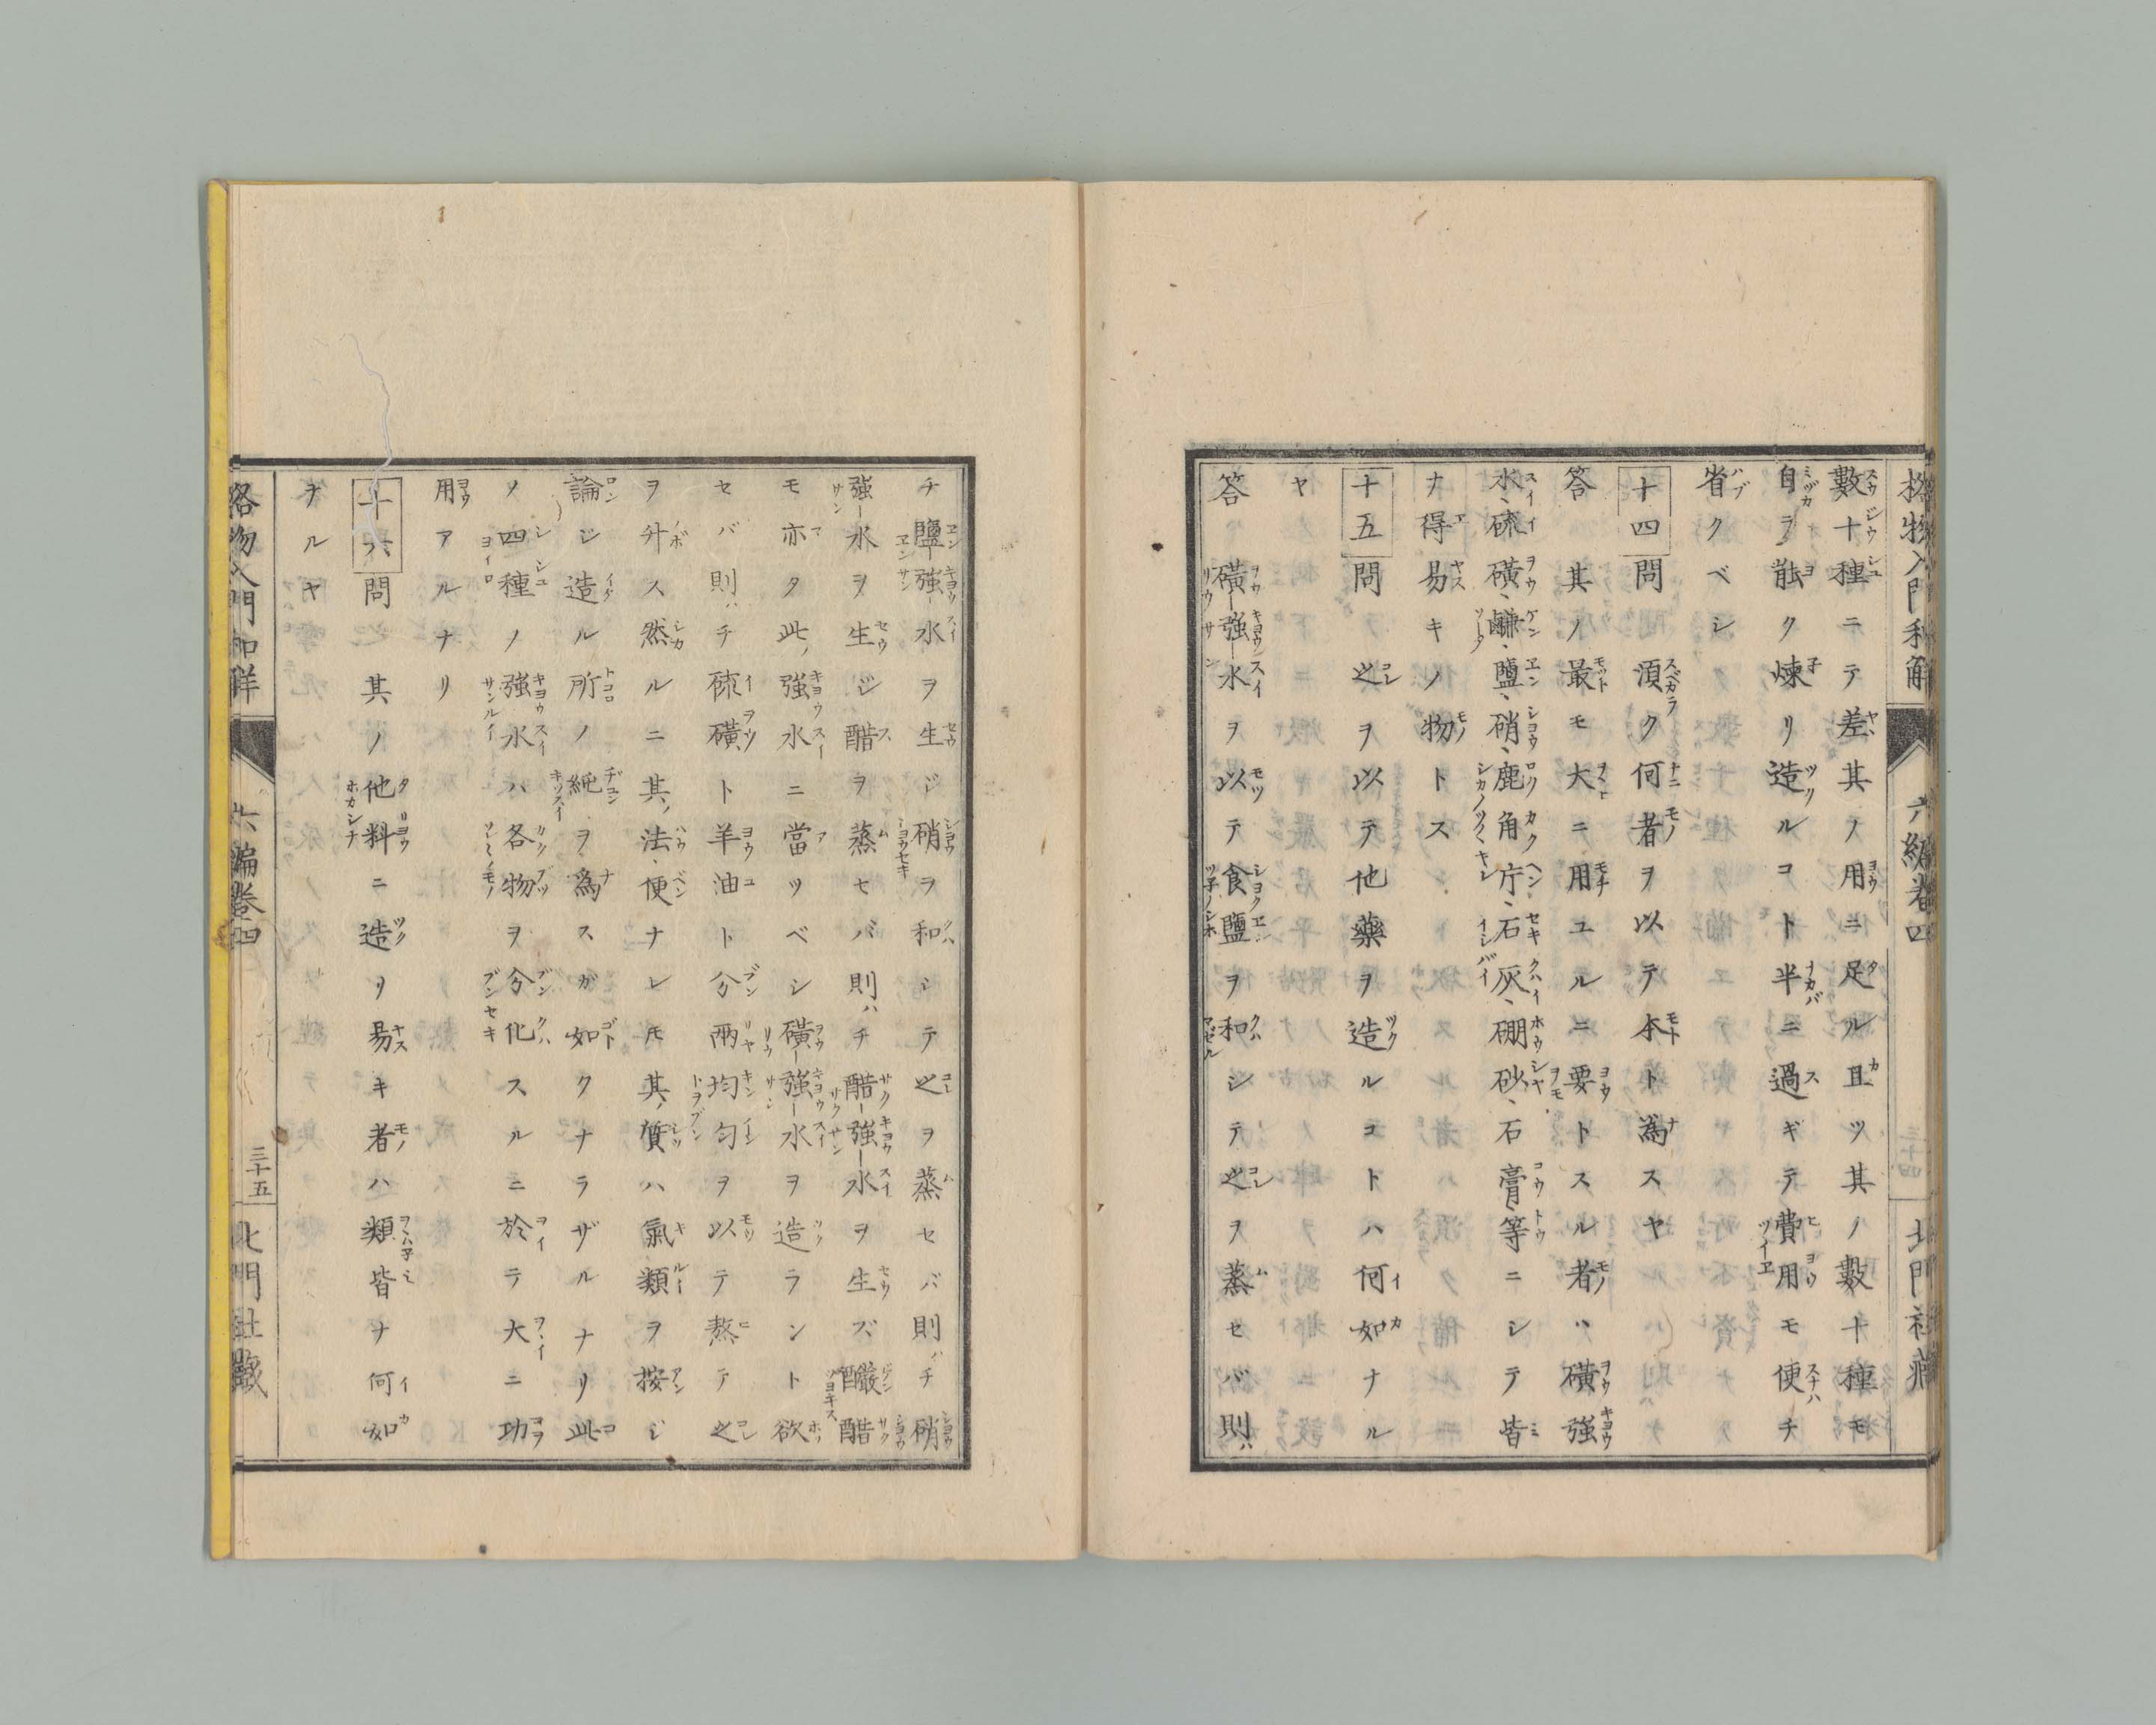 數十種ニテ差其ノ用ニ足ル且ツ其ノ數十種モ
自ラ能ク煉リ造ルコト半ニ過ギテ費用モ便チ
省クベシ
十四 問 須ク何者ヲ以テ本ト為スヤ
答 其ノ最モ大ニ用ユルニ要トスル者ハ磺強
水、硫磺、鹻、鹽、硝、鹿角片、石灰、硼砂、石膏、等ニシテ皆
ナ得易キノ物トス
十五 問 之ヲ以テ他藥ヲ造ルコトハ何如ナル
ヤ
答 磺強水ヲ以テ食鹽ヲ和シテ之ヲ蒸セバ則
チ鹽強水ヲ生ジ硝ヲ和シテ之ヲ蒸セバ則チ硝
強水ヲ生ジ醋ヲ蒸セバ則チ醋強水ヲ生ズ釅醋
モ亦タ此ノ強水ニ當ツベシ磺強水ヲ造ラント欲
セバ則チ硫磺ト羊油ト分兩均匀ヲ以テ熬テ之
ヲ升ス然ルニ其ノ法、便ナレ𪜈其ノ質ハ氣類ヲ按ジ
論ジ造ル所ノ純ヲ為スガ如クナラザルナリ此
ノ四種ノ強水ハ各物ヲ分化スルニ於テ大ニ功
用アルナリ
十六 問 其ノ他料ニ造リ易キ者ハ類皆ナ何如
ナルヤ
格物入門和解 六編卷四 三十四 北門社藏
格物入門和解 六編卷四 三十五 北門社藏